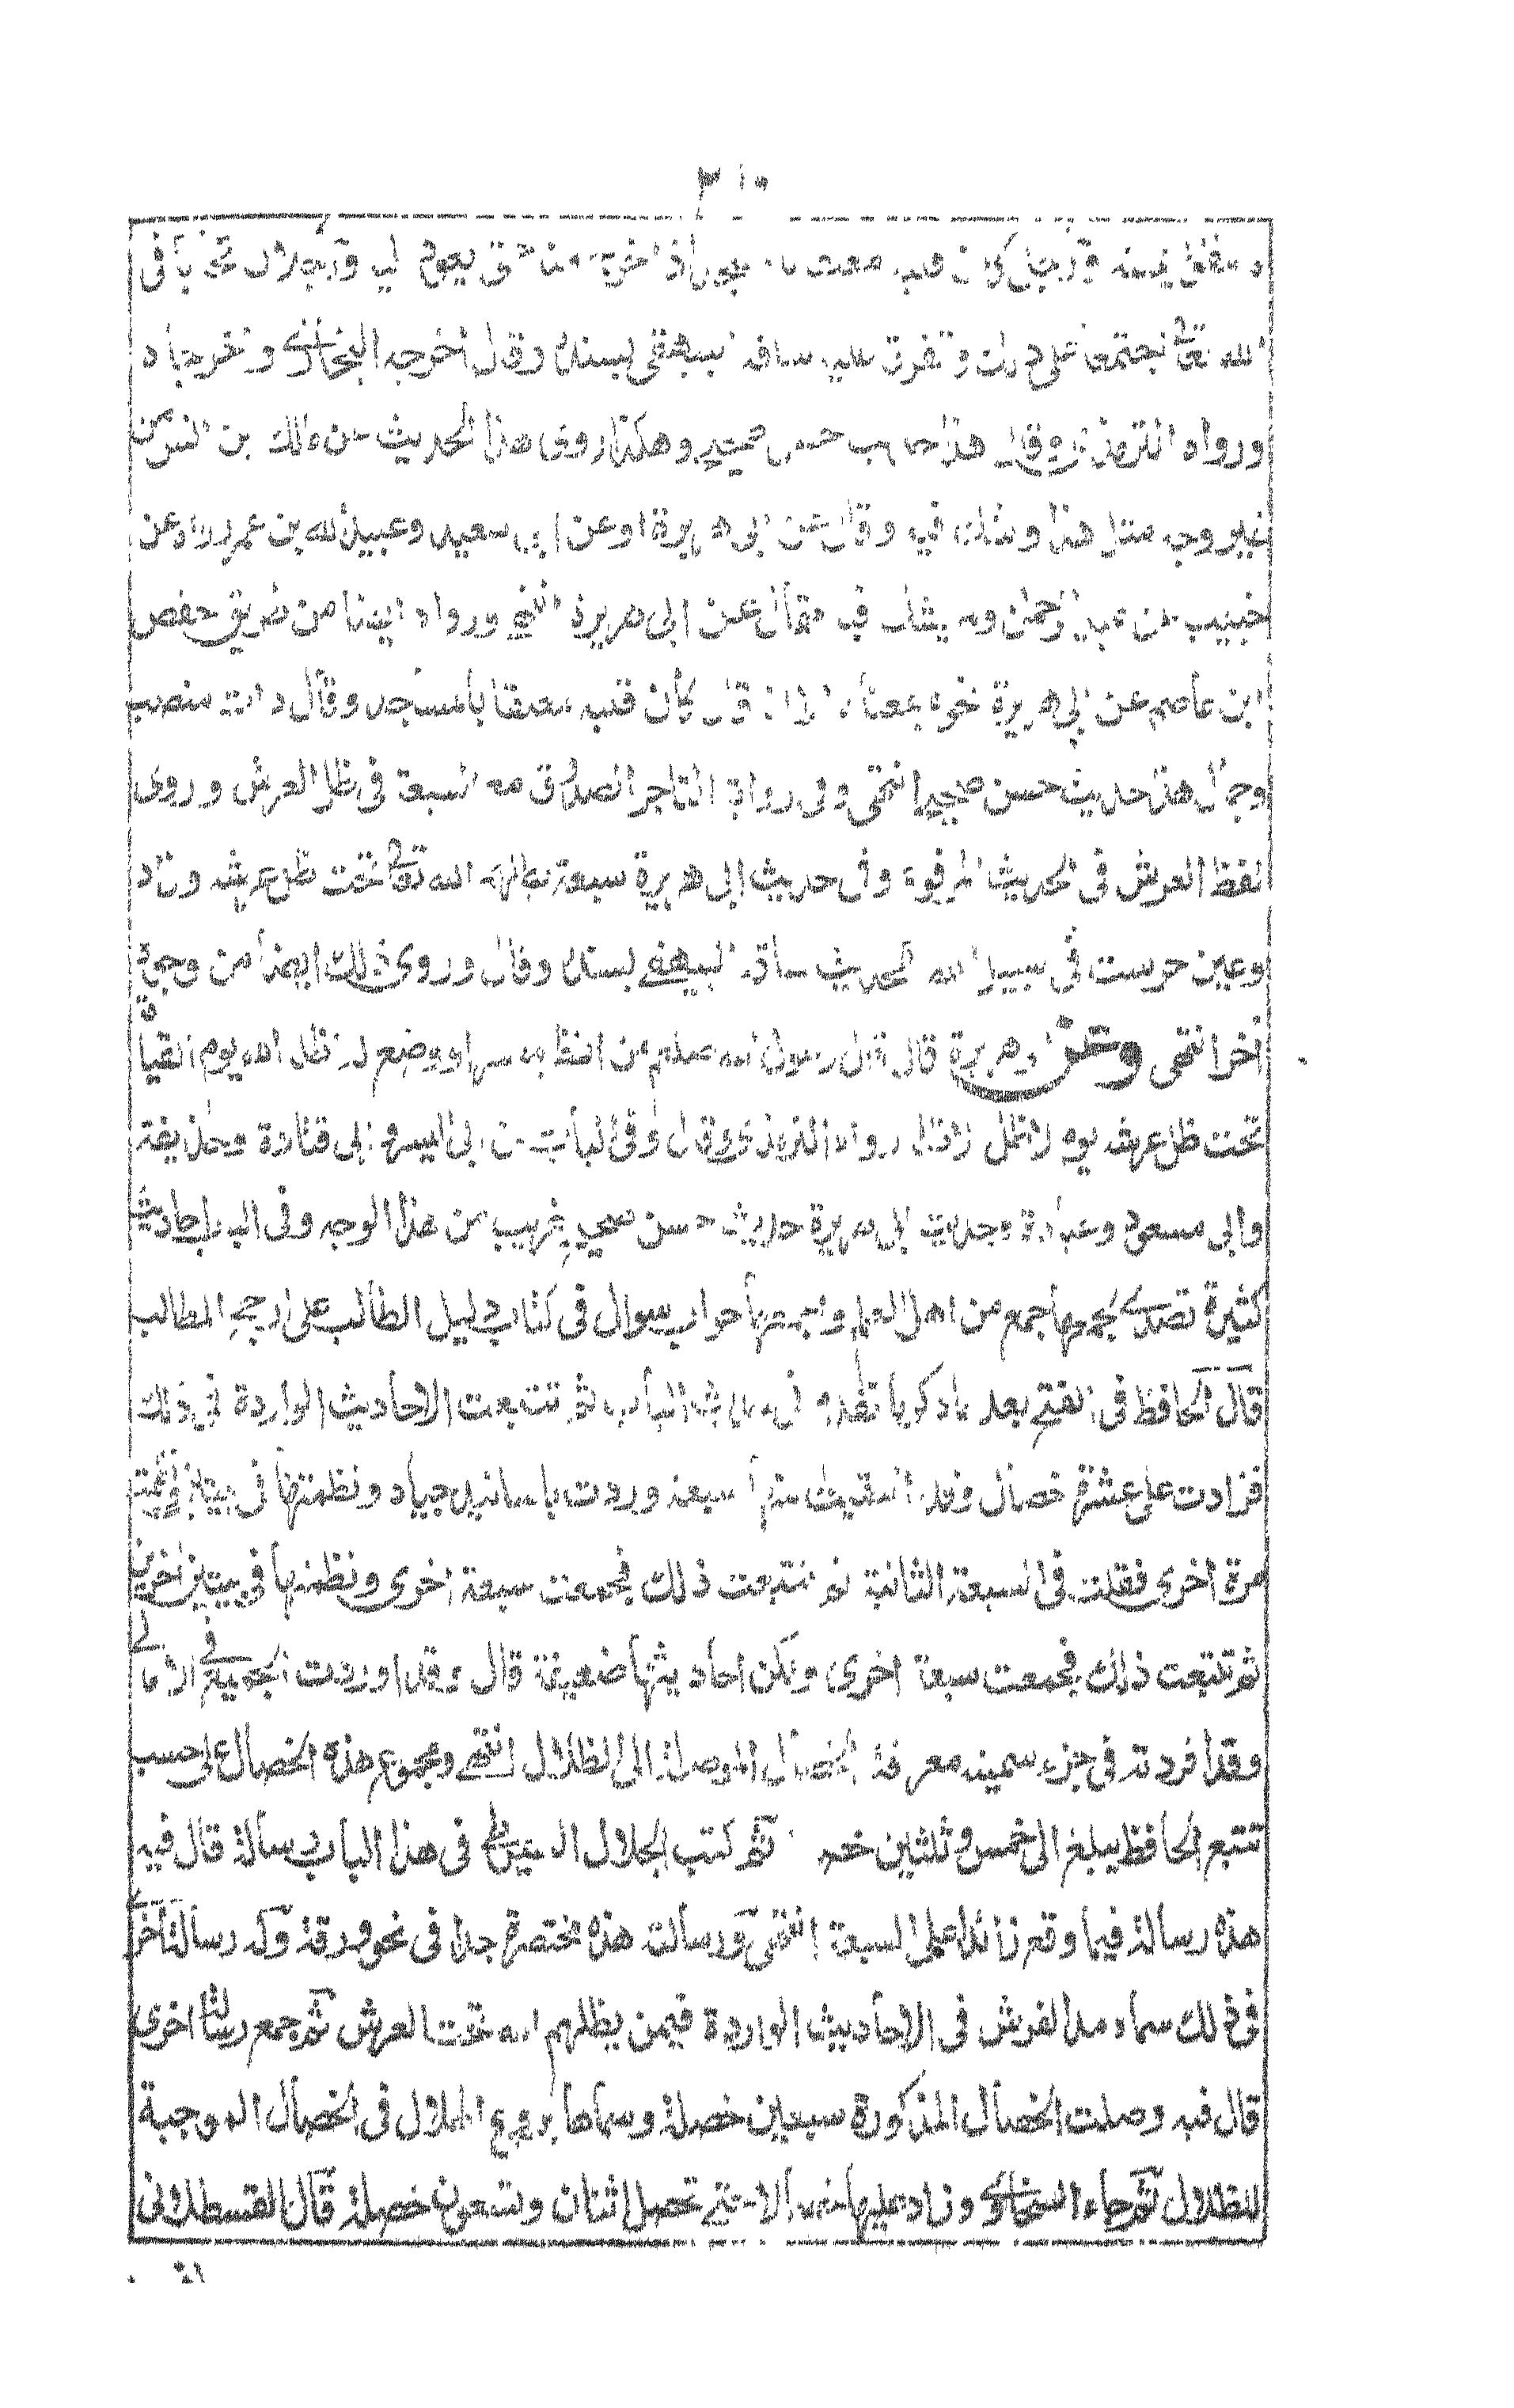 ٢١٠
تنفق يمينه ورجل كان قلبه معلقا بالمسجد اذا خرج منه حتى يعود اليه ورجلان تحابا فى
الله تعالى اجتمعا على ذلك وتفرقا عليه ساقه البيهقى بسنده وقال اخرجه البخارى و
ورواه الترمذى وقال هذا حديث حسن صحيح وهكذا روى هذا الحديث عن مالك بن انس من
غير وجه مثل هذا وشك فيه وقال عن ابى هريرة او عن ابى سعيد وعبيد الله بن عمر رواه عن
خبيب بن عبد الرحمن ولم يشك فيه فقال عن ابى هريرة انتهى ورواه ايضا من طريق حفص
ابن عاصم عن ابى هريرة نحوه بمعناه الا انه قال كان قلبه معلقا بالمساجد وقال ذات منصب
وجمال هذا حديث حسن صحيح انتهى وفى رواية التاجر الصدوق مع السبعة فى ظل العرش وروى
لفظ العرش فى الحديث المرفوع وفى حديث ابى هريرة سبعة يظلهم الله تعالى تحت ظل عرشه وزاد
وعين حرست فى سبيل الله الحديث ساقه البيهقى بسنده وقال وروى ذلك ايضا من وجوه
اخر انتهى وعن ابى هريرة قال قال رسول الله صلعم من انظر معسرا او وضع له اظله الله يوم القياة
تحت ظل عرشه يوم لا ظل الا ظله رواه الترمذى وقال وفى الباب عن ابى اليسر وابى قتادة وحذيفة
وابى مسعود وعبادة وحديث ابى هريرة حديث حسن صحيح غريب من هذا الوجه وفى الباب احاديث
كثيرة تصدى لجمعها جمع من اهل العلم وجمعتها جواب سوال فى كتاب دليل الطالب على ارجح المطالب
قال الحافظ فى الفتح بعد ما ذكر ما تقدم فى هذا الباب ثم تتبعت الاحاديث الواردة فى ذلك
فزادت على عشرة خصال وقد انتقيت منها سبعة وردت باسانيد جياد ونظمتها فى بيتين وتتبعت
مرة اخرى فقلت فى السبعة الثانية ثم تتبعت ذلك فجمعت سبعة اخرى ونظمتها فى بيتين اخرين
ثم تتبعت ذلك فجمعت سبعة اخرى ولكن احاديثها ضعيفة قال وقد اوردت الجميع فى الامالى
وقد افردته فى جزء سميته معرفة الخصال الموصلة الى الظلال انتهى ومجموع هذه الخصال على حسب
تتبع الحافظ يبلغ الى خمس وثلثين خصلة ثم كتب الجلال السيوطى فى هذا الباب رسالة قال فيه
هذه رسالة فيما وقع زائدا على السبعة انتهى ورسالته هذه مختصرة جدا فى نحو ورقة وله رسالة اخرى
فى ذلك سماه مد الفرش فى الاحاديث الواردة فيمن يظلهم الله تحت العرش ثم جمع رسالة اخرى
قال فيه وصلت الخصال المذكورة سبعين خصلة وسماها بزوغ الهلال فى الخصال الموجبة
للظلال ثم جاء السخاوى وزاد عليها حتى تحصل اثنان وتسعون خصلة قال القسطلانى